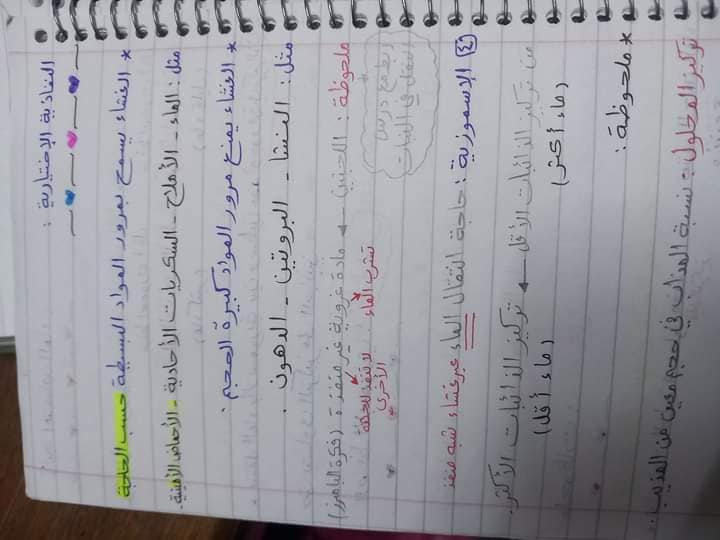 النفاذية الاختيارية :
* الغشاء يسمح بمرور المواد البسيطة حسب الحاجة
مثل : الماء - الأملاح - السكريات الأحادية - الأحماض الأمينية .
* الغشاء يمنع مرور المواد كبيرة الحجم .
مثل : النشا - البروتين - الدهون .
ملحوظة : اللجنين ← مادة غروية غير منفذة (فكرة البامبرز)
تشرب الماء لا تنفذه للجهة
الأخرى
مع درس
النقل في النبات
[٤] الاسموزية : حاجة انتقال الماء عبر غشاء شبه منفذ
من تركيز الذائبات الأقل ← تركيز الذائبات الأكثر .
(ماء أكثر) (ماء أقل)
* ملحوظة :
تركيز المحلول : نسبة المذاب في حجم معين من المذيب .